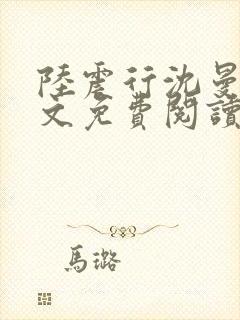 陸震行沈曼
文免費閱讀
馬璐